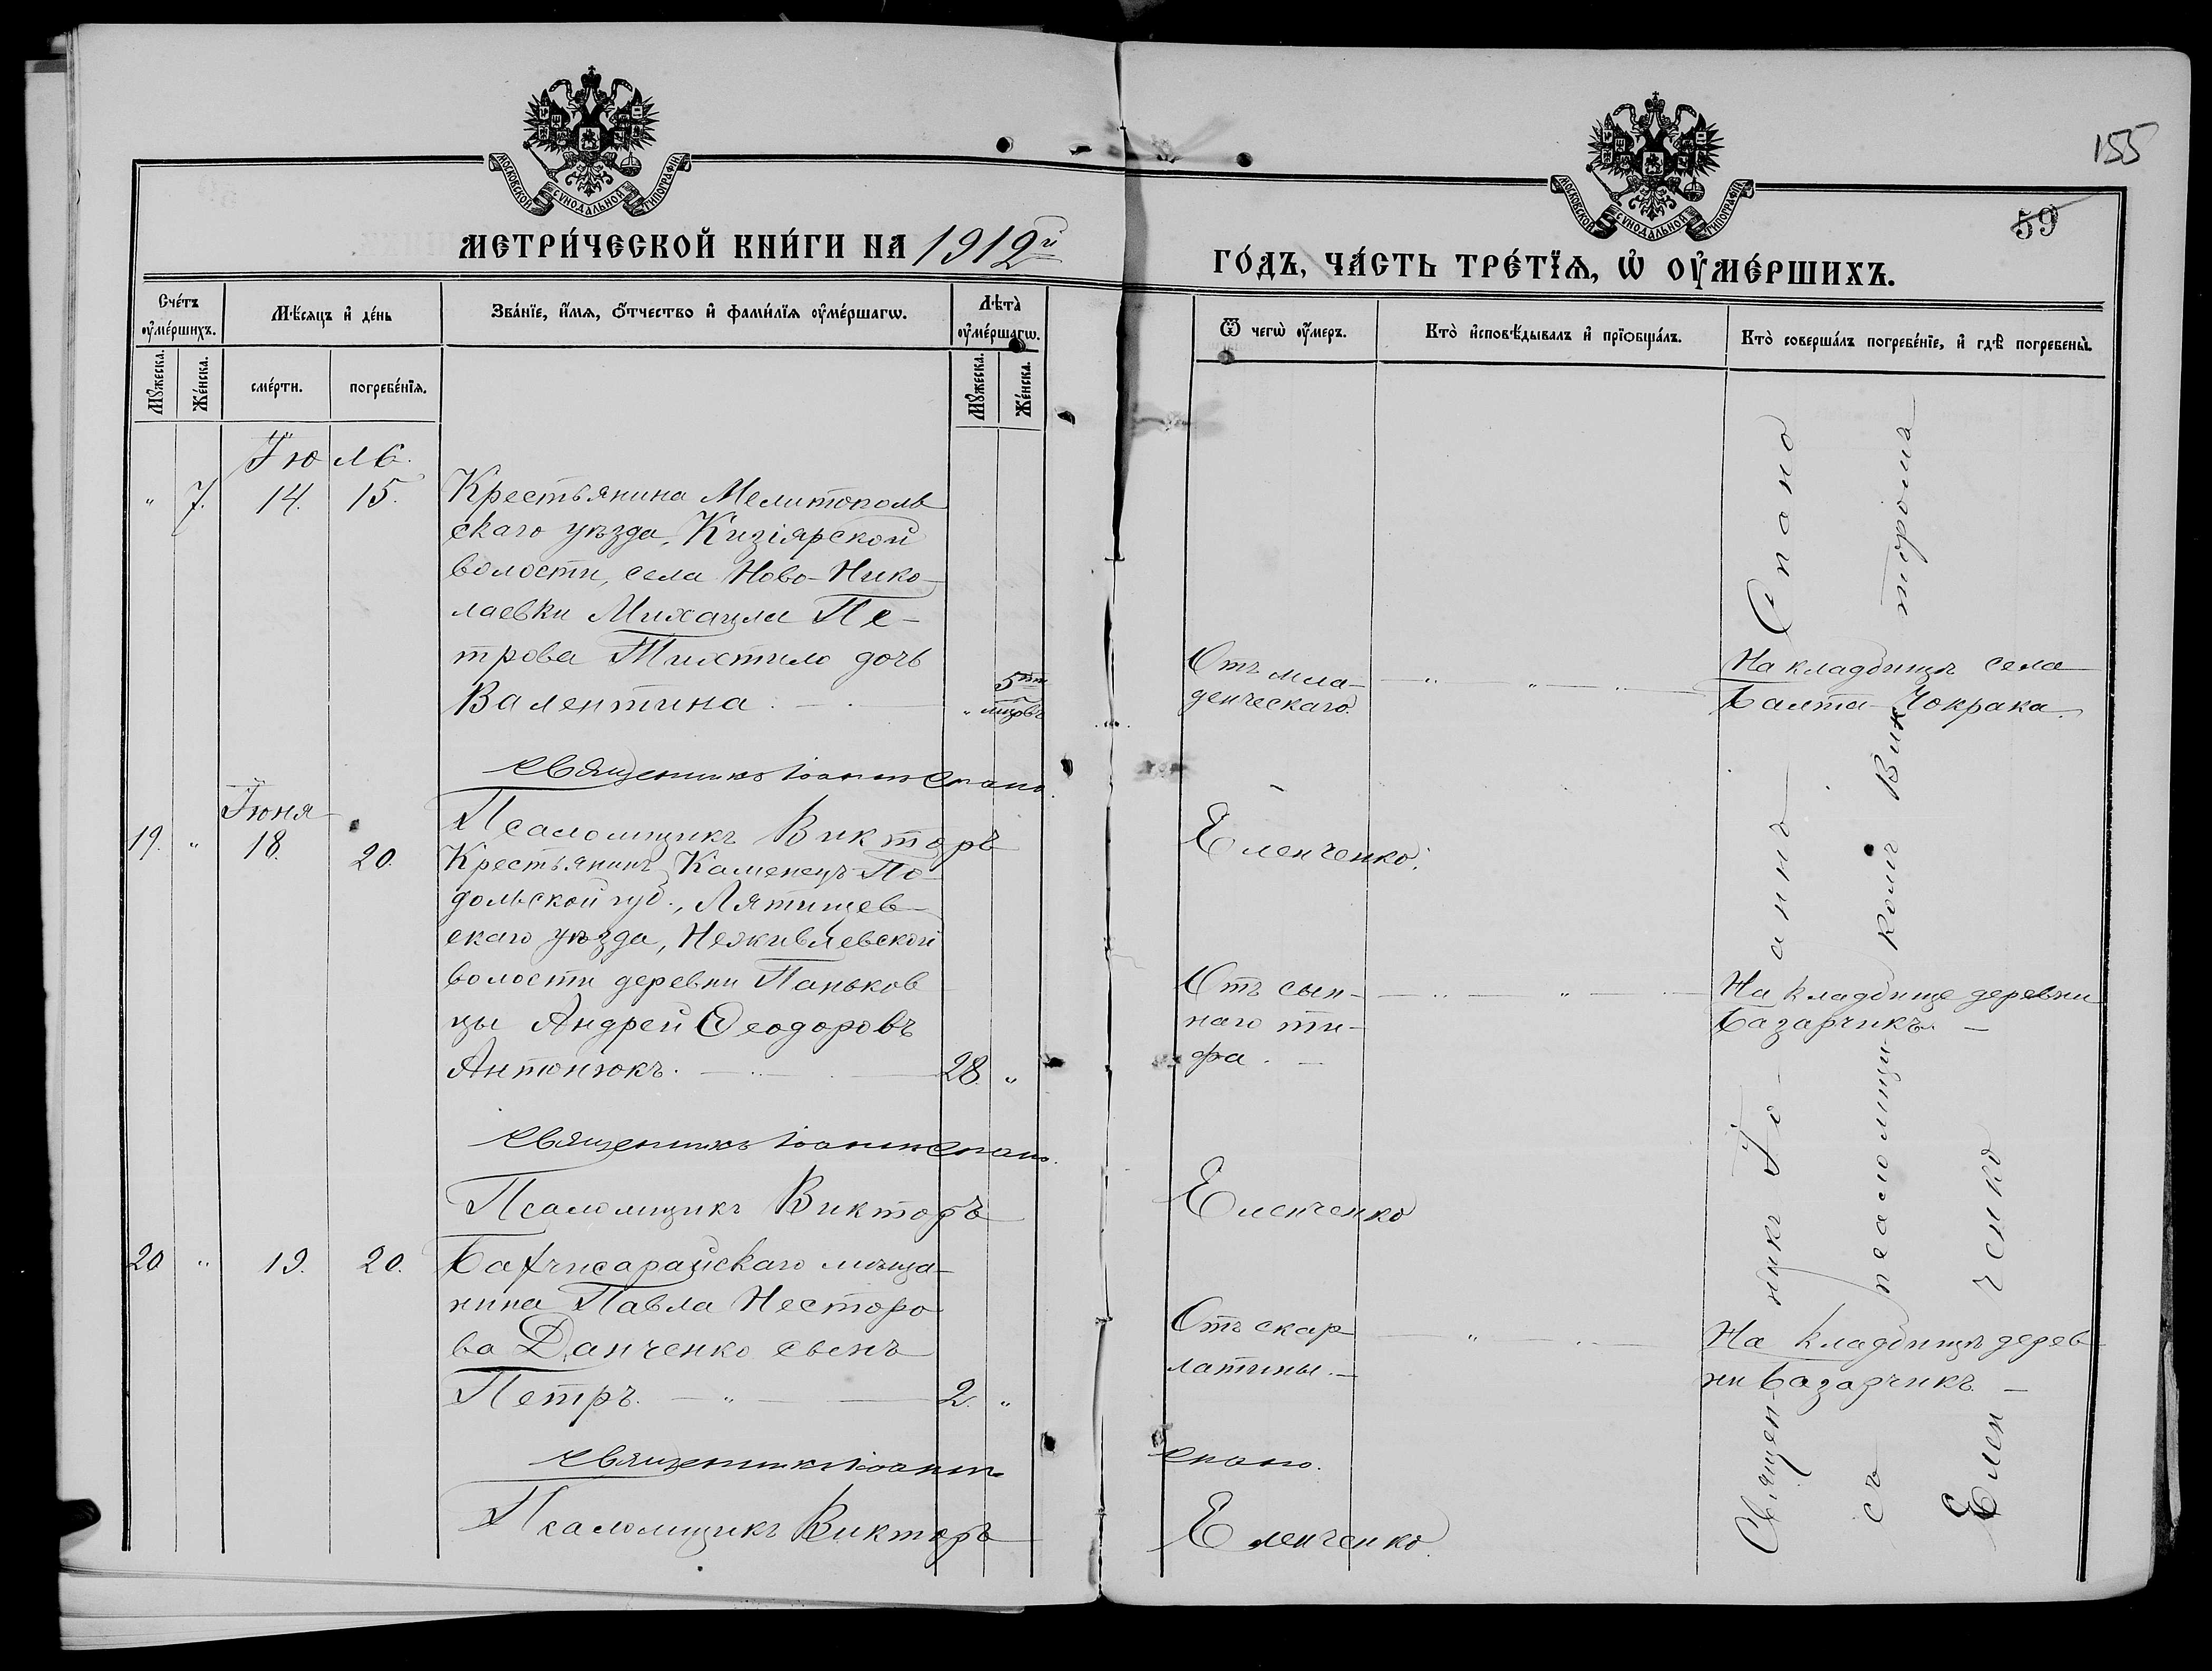 155
59
МОСКОВСКОЙ СѴНОДАЛЬНОЙ ТИПОГРАФІИ
МОСКОВСКОЙ СѴНОДАЛЬНОЙ ТИПОГРАФІИ
МЕТРИ́ЧЕСКОЙ КНИ́ГИ НА 1912й
ГО́ДЪ, ЧА́СТЬ ТРЕ́ТЇѦ, Ѡ҆ ОУ҆МЕ́РШИХЪ.
Сче́тъ оу҆ме́ршихъ.
Мꙋ́жеска.
Же́нска.
Мѣ́сѧцъ и҆ де́нь
сме́рти.
погребе́нїѧ.
Зва́нїе, и҆́мѧ, ѻ҆́тчество и҆ фами́лїѧ оу҆ме́ршагѡ.
Лѣ́та оу҆ме́ршагѡ.
Мꙋ́жеска.
Же́нска.
Ѿ чегѡ̀ оу҆́меръ.
Кто̀ и҆сповѣ́дывалъ и҆ прїѻбща́лъ.
Кто̀ соверша́лъ погребе́нїе, и҆ гдѣ̀ погребены̀.
Іюль.
" 7. 14. 15. Крестьянина Мелитополь
скаго уѣзда, Кизіярской
волости, села Ново-Нико-
лаевки Михаила Пе-
трова Тихтило дочь
Валентина. " 5ти мцовъ
Отъ мла-
денческаго.
На кладбищѣ села
Балта-Чокрака.
Священникъ Іоаннъ Спано.
Псаломщикъ Викторъ Еленченко.
Іюня
19. " 18. 20. Крестьянинъ Каменецъ-По-
дольской губ., Лятищев-
скаго уѣзда, Неживлевской
волости деревни Паньков
цы Андрей Ѳеодоровъ
Антонюкъ. 28. "
Отъ сып-
наго ти-
фа.
На кладбище деревни
Базарчикъ.
Священникъ Іоаннъ Спано.
Псаломщикъ Викторъ Еленченко
20 " 19. 20. Бахчисарайскаго мѣща-
нина Павла Несторо
ва Данченко сынъ
Петръ. 2. "
Отъ скар
латины.
На кладбищѣ дерев
ни Базарчикъ.
Священникъ Іоаннъ Спано.
Псаломщикъ Викторъ Еленченко.
Священ-никъ Іо-аннъ Спано
съ псаломщи-комъ Виктором
Елен-ченко